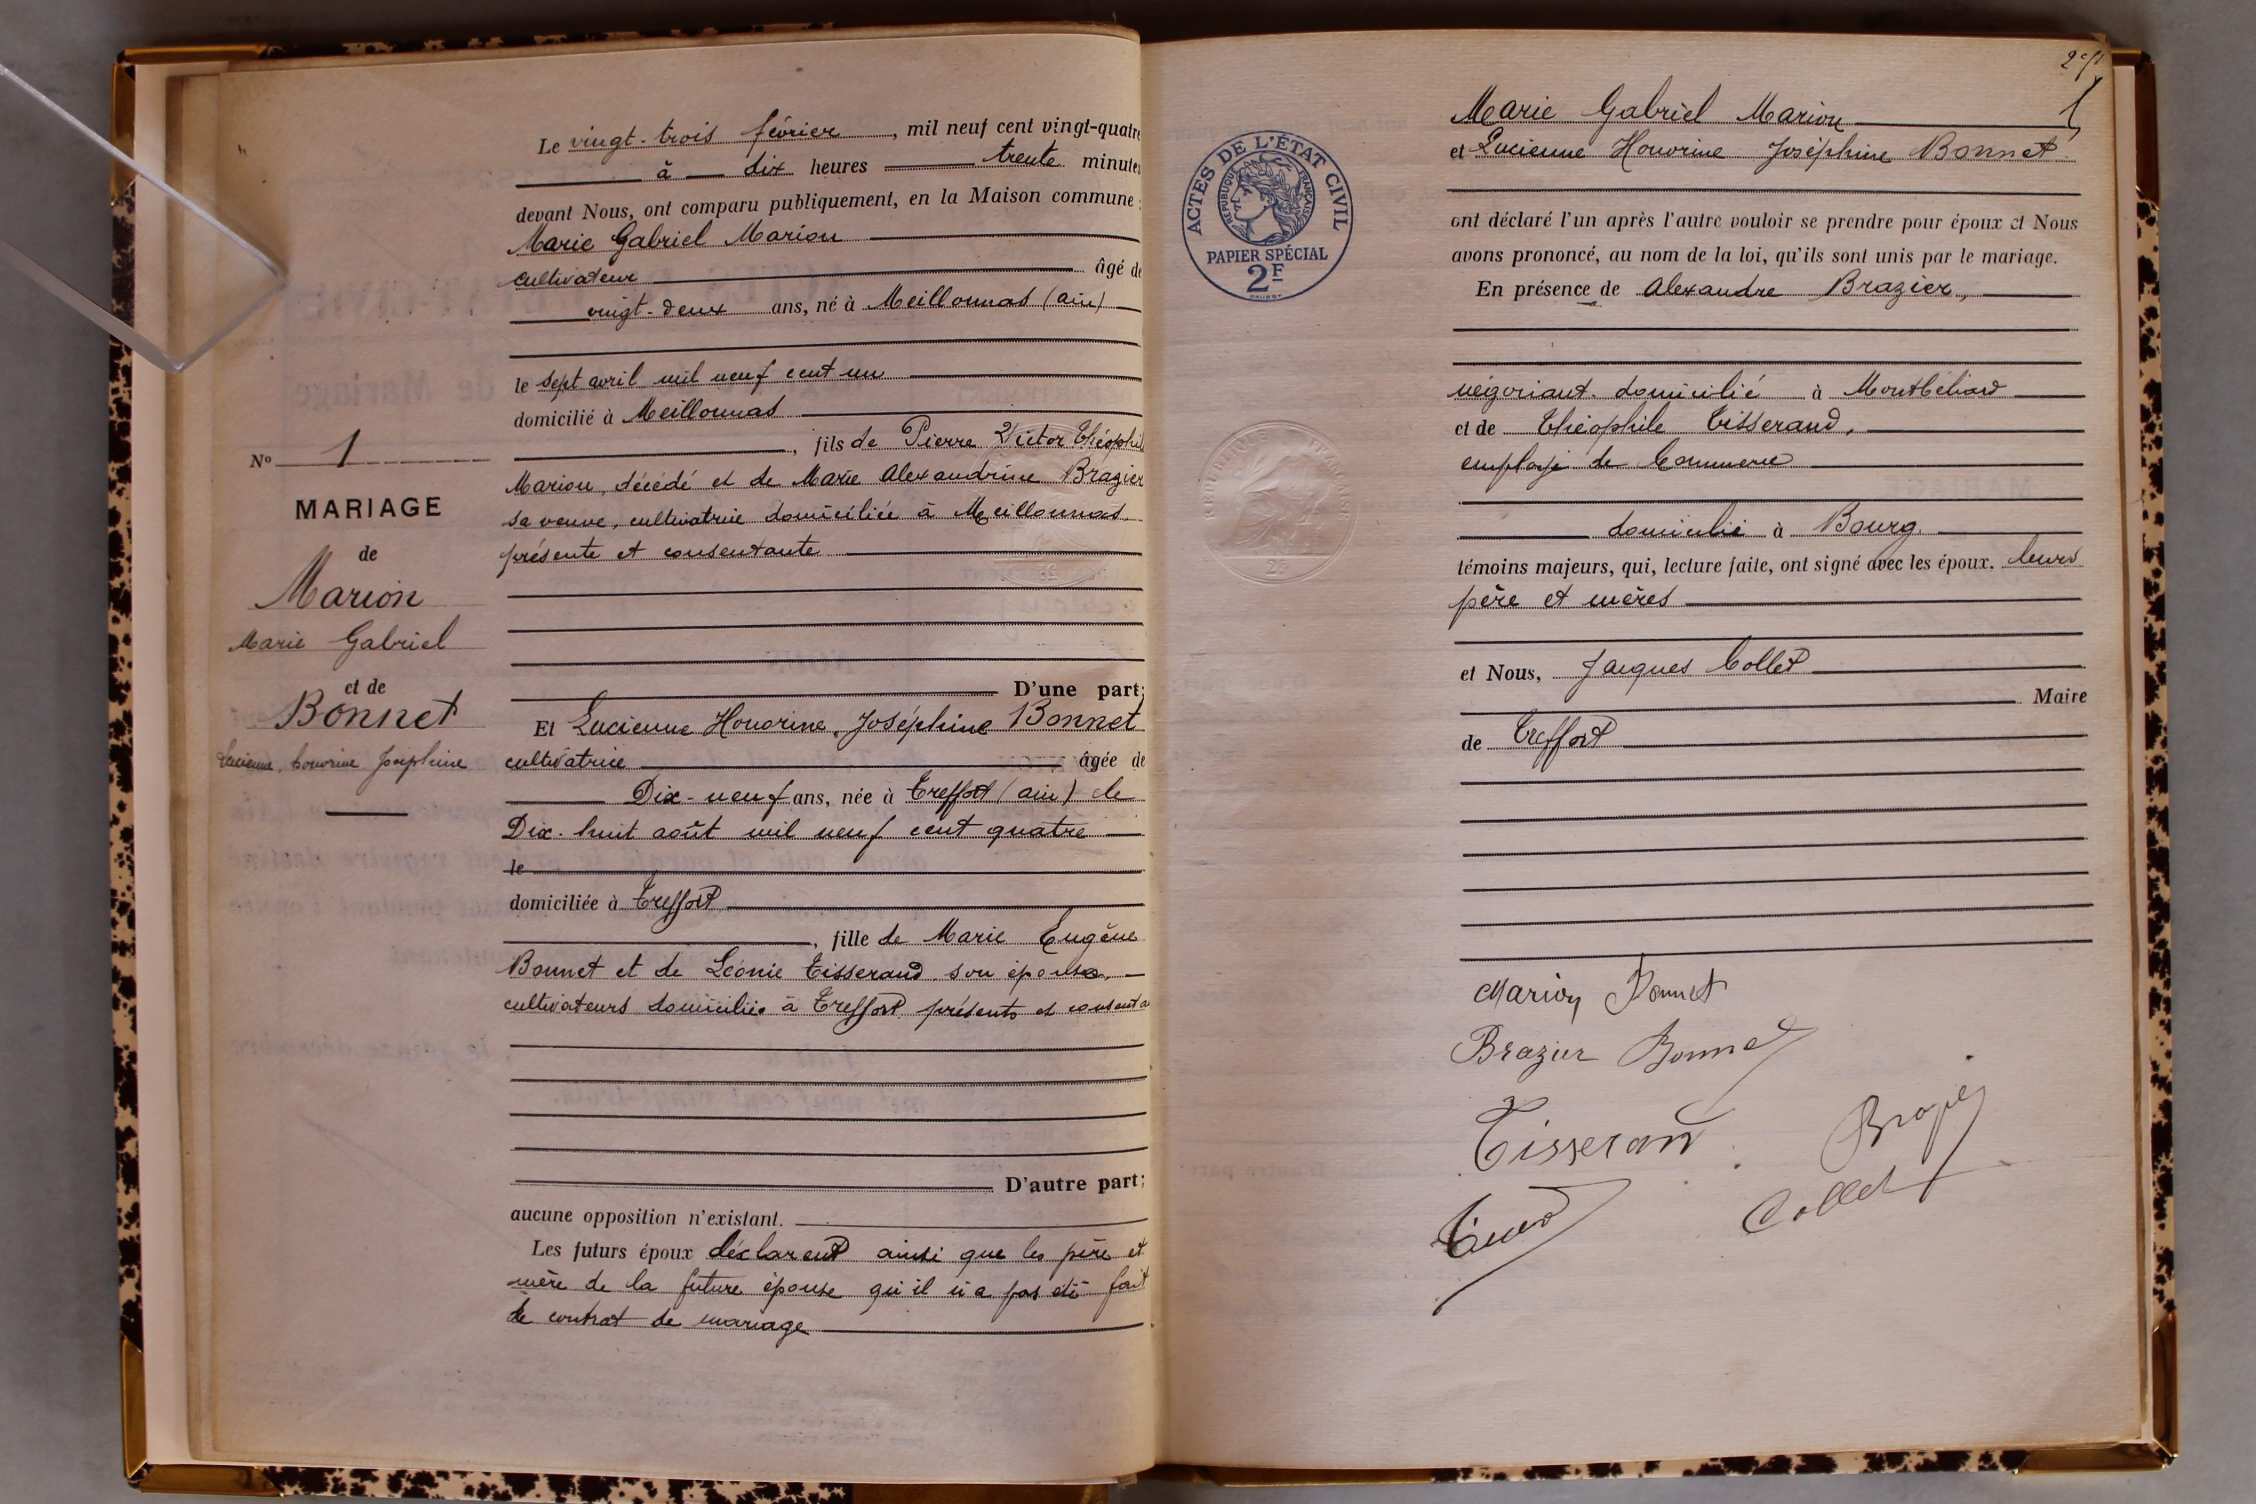 Le vingt-trois février, mil neuf cent vingt-quatre
à dix heures trente minutes
devant Nous, ont comparu publiquement, en la Maison commune :
Marie Gabriel Marion
cultivateur âgé de
vingt-deux ans, né à Meillonnas (ain)
le sept avril mil neuf cent un
domicilié à Meillonnas
, fils de Pierre Victor Théophile
Marion, décédé et de Marie Alexandrine Brazier
sa veuve, cultivatrice domiciliée à Meillonnas,
présente et consentante
D'une part;
Et Lucienne Honorine Joséphine Bonnet
cultivatrice âgée de
Dix-neuf ans, née à Treffort (ain) le
Dix-huit août mil neuf cent quatre
le
domiciliée à Treffort
, fille de Marie Eugène
Bonnet et de Léonie Tisserand son épouse,
cultivateurs domiciliés à Treffort présents et consenta
D'autre part;
aucune opposition n'existant.
Les futurs époux déclarent ainsi que les père et
mère de la future épouse qu'il n'a pas été fait
de contrat de mariage
No 1
MARIAGE
de
Marion
Marie Gabriel
et de
Bonnet
Lucienne, honorine Joséphine
ACTES DE L'ÉTAT CIVIL
RÉPUBLIQUE FRANÇAISE
PAPIER SPÉCIAL
2F
Marie Gabriel Marion
et Lucienne Honorine Joséphine Bonnet
ont déclaré l'un après l'autre vouloir se prendre pour époux et Nous
avons prononcé, au nom de la loi, qu'ils sont unis par le mariage.
En présence de Alexandre Brazier,
négociant domicilié à Montbéliard
et de Théophile Tisserand,
employé de Commerce
domicilié à Bourg
témoins majeurs, qui, lecture faite, ont signé avec les époux. leurs
père et mères
et Nous, Jacques Collet
Maire
de Treffort
Marion Bonnet
Brazier Bonnet
Tisserand
Collet